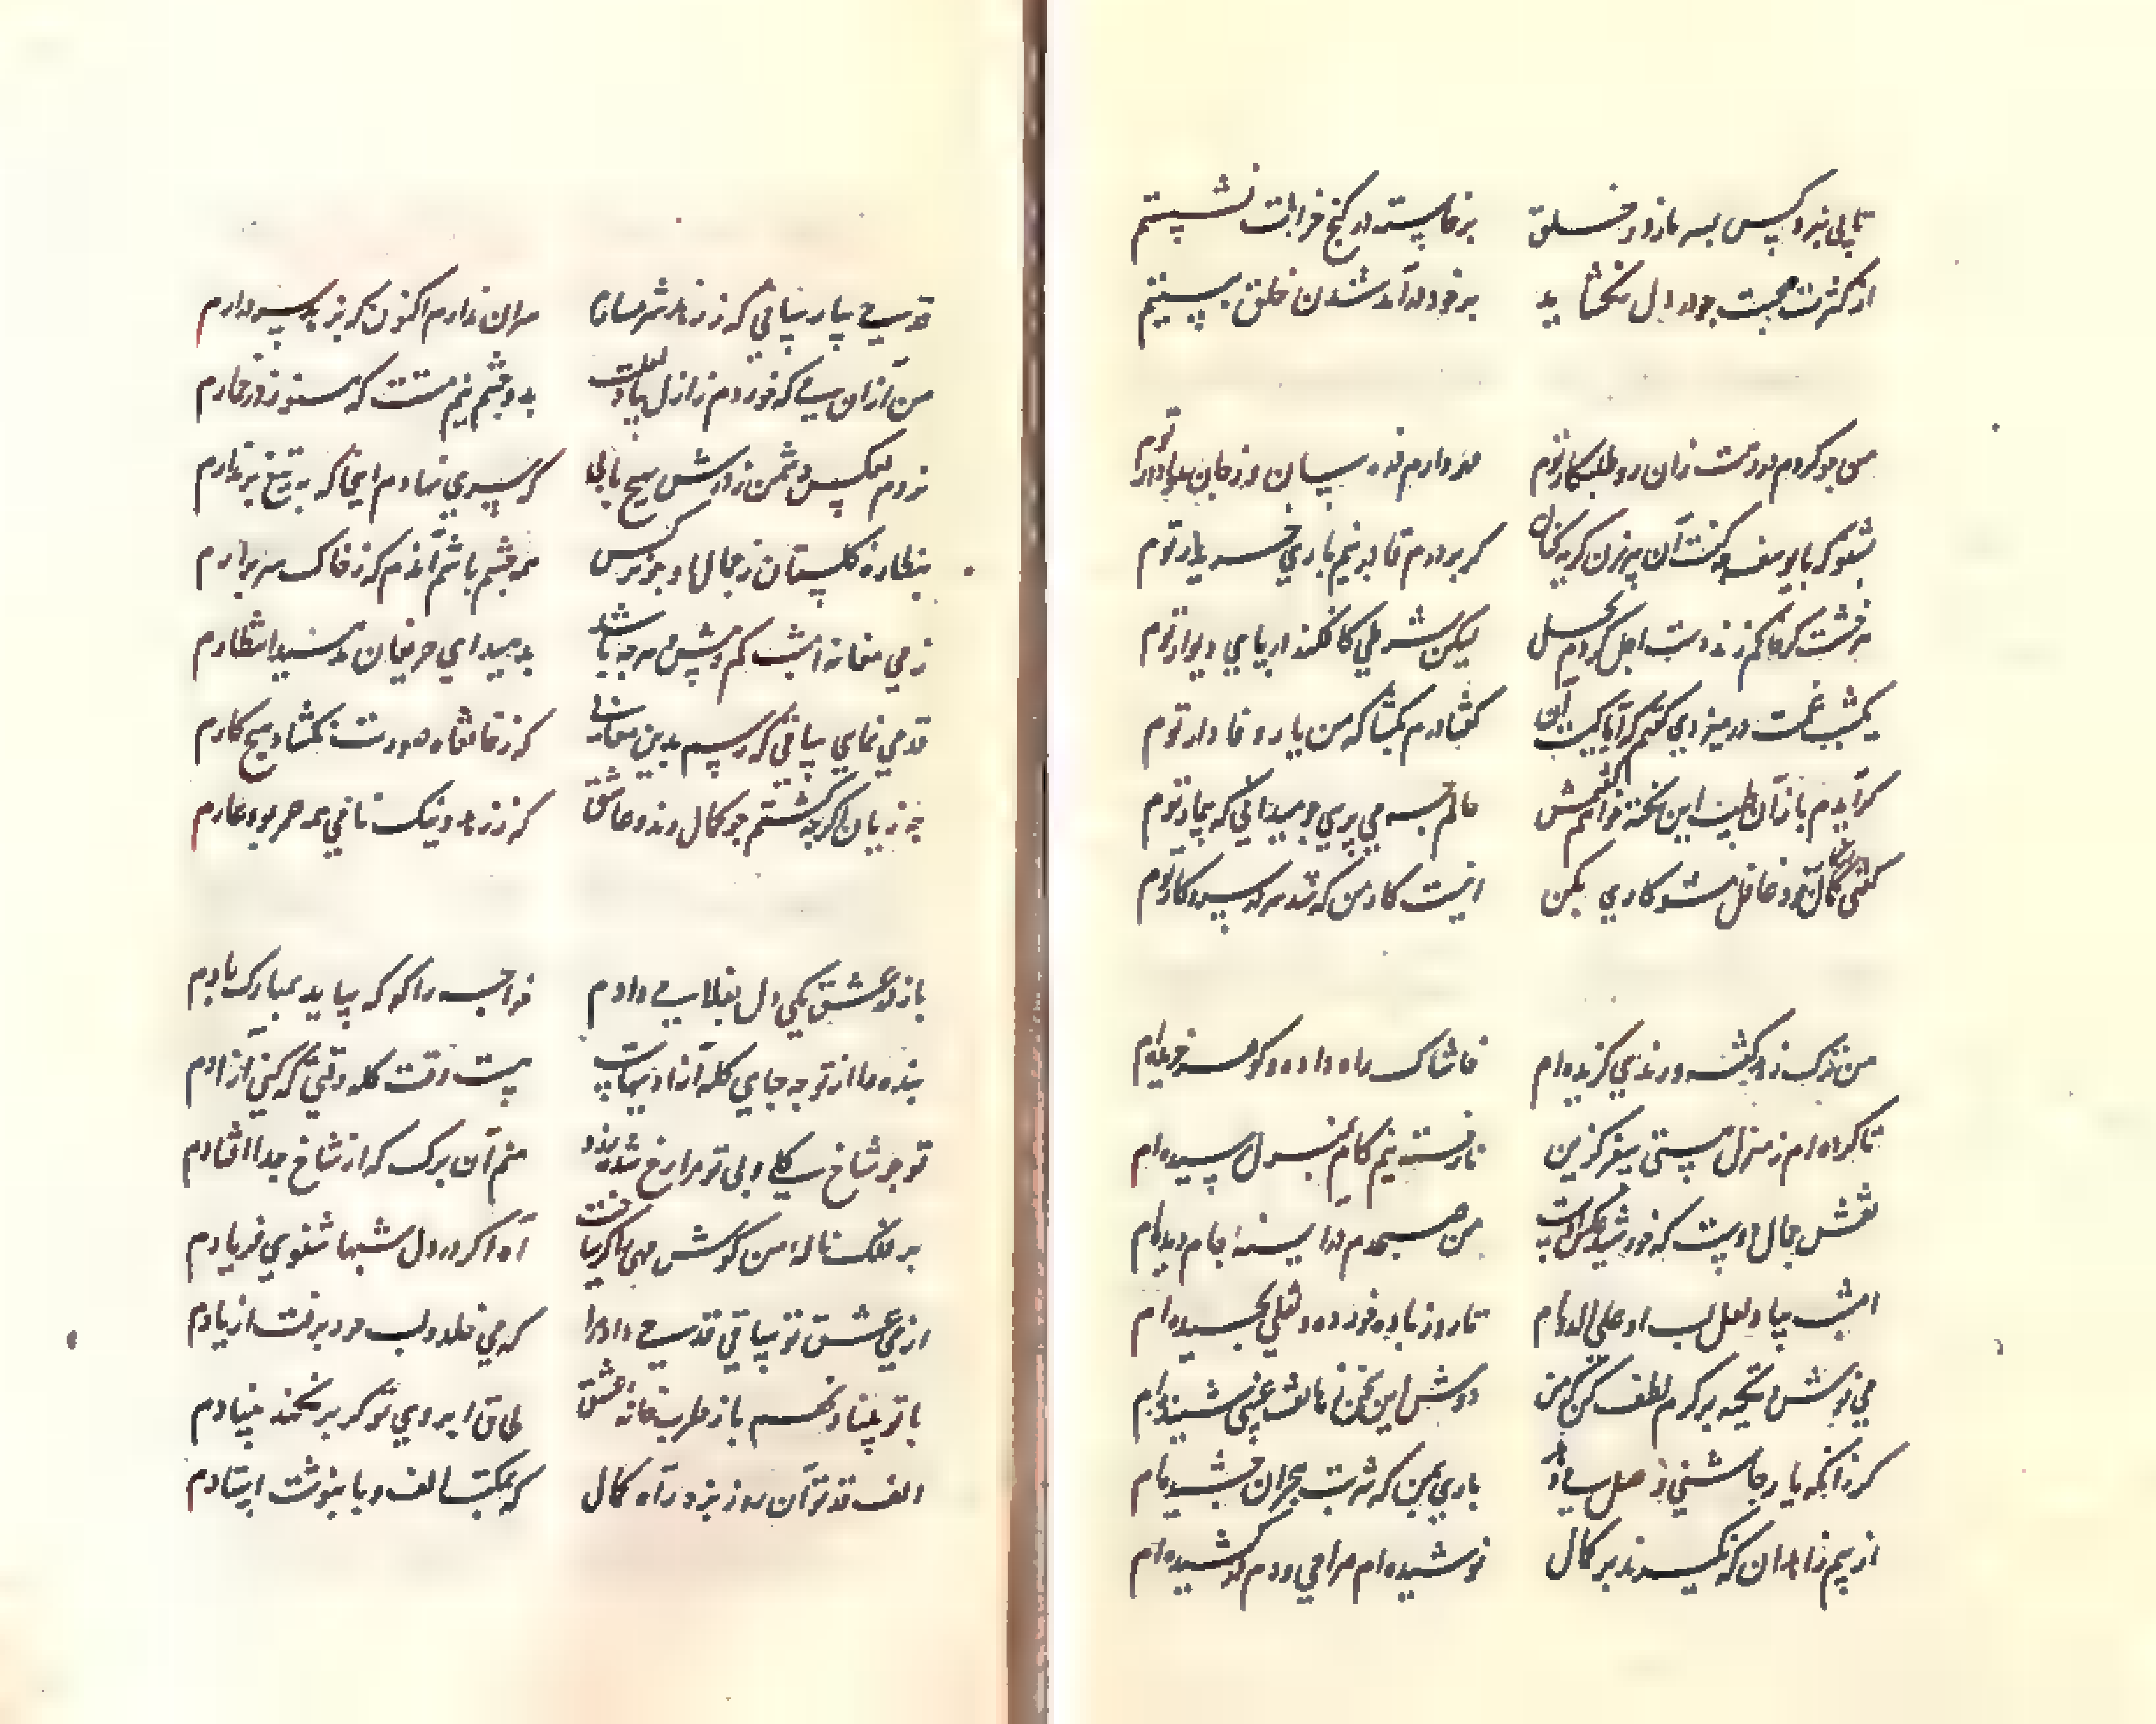 تا پی نبرد کس بسر ما ز در خلق
برخاسته در کنج خرابات نشستم
از کثرت محبت چو در دل نگشاید
بر خود در آمد شدن خلق ببستم
من جو کردم دردت زان رو طلبکار توم
درد دارم در میان وز جان
بشنو که با یوسف چه گفت آن پیرزن
گر بر درم قادر نیم باری خریدار توم
هر خشت کز خاکم زند دست اجل کردم بحل
لیکن بشرطی کافکند در پای دیوار توم
یکشب غمت در میزدی گفتم کرایا کیست آن
گفتا درم بگشا که من یار وفادار توم
گر آیدم باز آن طبیب این نکته خواهم گفتمش
حالم چه می پرسی چو میدانی که بیمار توم
گفتی کمال از درد خود غافل مشو کاری بکن
اینست کار من که شد سر در سر کار توم
من ترک زهد گفته و رندی گزیده ام
خاشاک راه داده و گوهر خریده ام
تا کرده ام ز منزل هستی سفر گزین
نارفته نیم گام بمنزل رسیده ام
نقش جمال دوست که خورشید عکس اوست
من صبحدم در آینه جام دیده ام
امشب بیاد لعل لب او علی الدوام
تا روز باده خورده و نقلی چشیده ام
می نوش و تکیه بر کرم لطف کن که من
دوش این سخن ز هاتف غیبی شنیده ام
گر زانکه یار چاشنی وصل
باری ببین که شربت هجران چشیده ام
از بیم زاهدان که نگیرند بر کمال
نوشیده ام صراحی و دم در کشیده ام
قدحی بیار ساقی که ز زهد شرمسارم
سر آن ندارم اکنون که بزهد سر در آرم
من از آن میی که خوردم ز ازل بیاد لعلت
بدو چشم نیم مستت که هنوز در خمارم
نروم بعکس دشمن ز درش بهیچ بابی
که سری نهادم اینجا که به تیغ بر ندارم
بنظاره گلستان ز جمال او چو نرگس
همه چشم باشم آندم که ز خاک سر برآرم
ز می مغانه امشب کم و بیش هر چه باشد
بدهید ای حریفان مدهید انتظارم
قدمی نمای ساقی که رسم بدین مغانی
که ز خانقاه و دردت نگشاد هیچ کارم
چه زیان اگر چه گشتم چو کمال رند و عاشق
که ز زهد و نیکنامی همه عمر بود عارم
باز در عشق یکی دل بغلامی دادم
خواجه را کو که بیاید بمبارکبادم
بنده را از تو چه جای گله آزادیهاست
هست وقت گله وقتی که کنی آزادم
تو چو شاخ گلی و بی تو مرا رخ شده زرد
منم آن برگ که از شاخ جدا افتادم
بر فلک ناله من گوش مهی را کر ساخت
آه اگر در دل شبها شنوی فریادم
از می عشق تو ساقی قدحی داد مرا
که می خلد و لب حور برفت از یادم
با تو بنیاد نهم باز طربخانه عشق
طاق ابروی تو گر بر نکند بنیادم
الف قد تو آن روز بزد راه کمال
که بمکتب الف و با بنوشت استادم